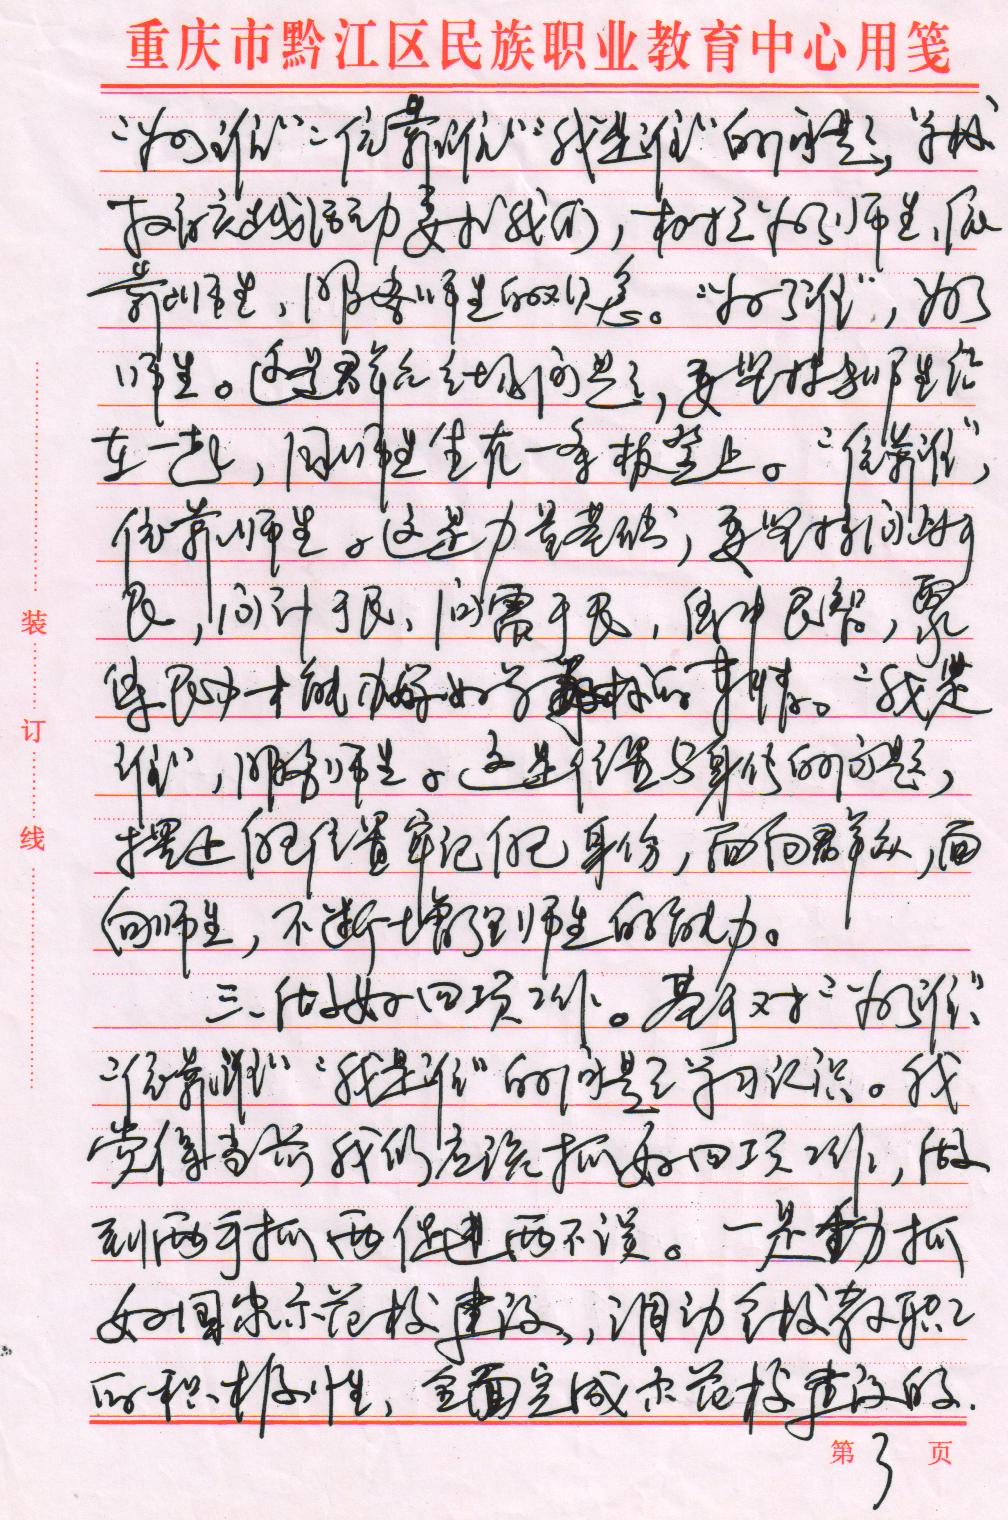 重庆市黔江区民族职业教育中心用笺
“为了谁”“依靠谁”“我是谁”的问题，学校
教育实践活动要求我们，树立为了师生、依
靠师生，服务师生的观念。“为了谁”，为了
师生。这是群众立场问题，要坚持和师生站
在一起，同师生坐在一条板凳上。“依靠谁”，
依靠师生。这是力量基础，要坚持问政于
民，问计于民、问需于民，集中民智，聚
集民力才能办好好学校的事情。“我是
谁”，服务师生。这是位置与身份的问题，
摆正自己位置牢记自己身份，面向群众，面
向师生，不断增强师生的能力。
三、做好四项工作。基于对“为了谁”、
“依靠谁”“我是谁”的问题之学习认识。我
觉得当前我们应该抓好四项工作，做
到两手抓两促进两不误。一是主动抓
好国家示范校建设，调动全校教职工
的积极性，全面完成示范校建设的
第3页
装
订
线